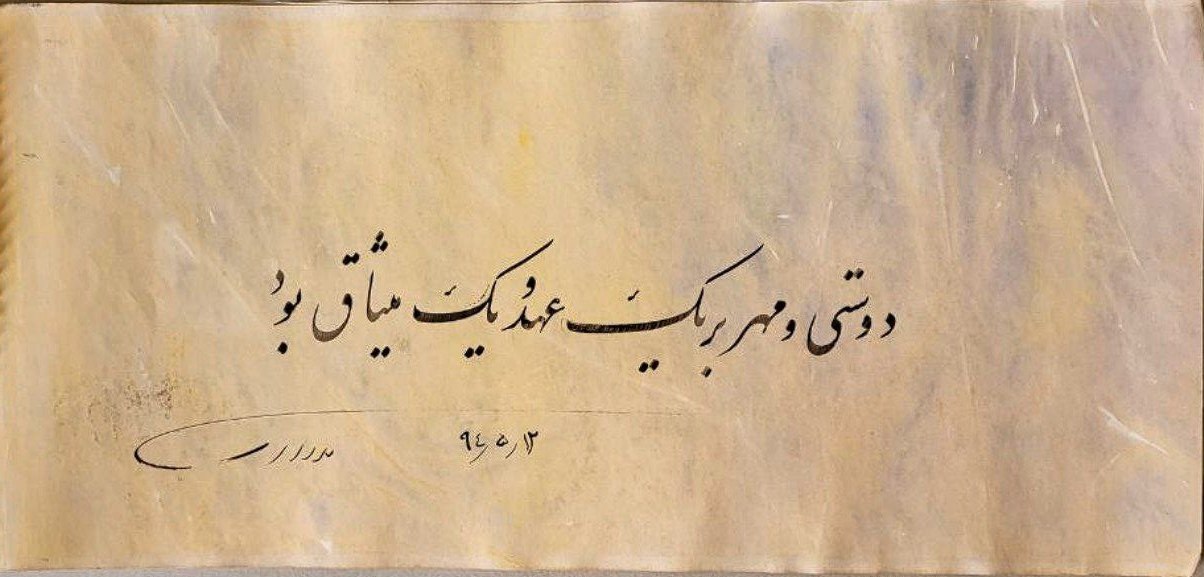 دوستی و مهر بر یک عهد و یک میثاق بود
۹۴٫۵٫۱۲